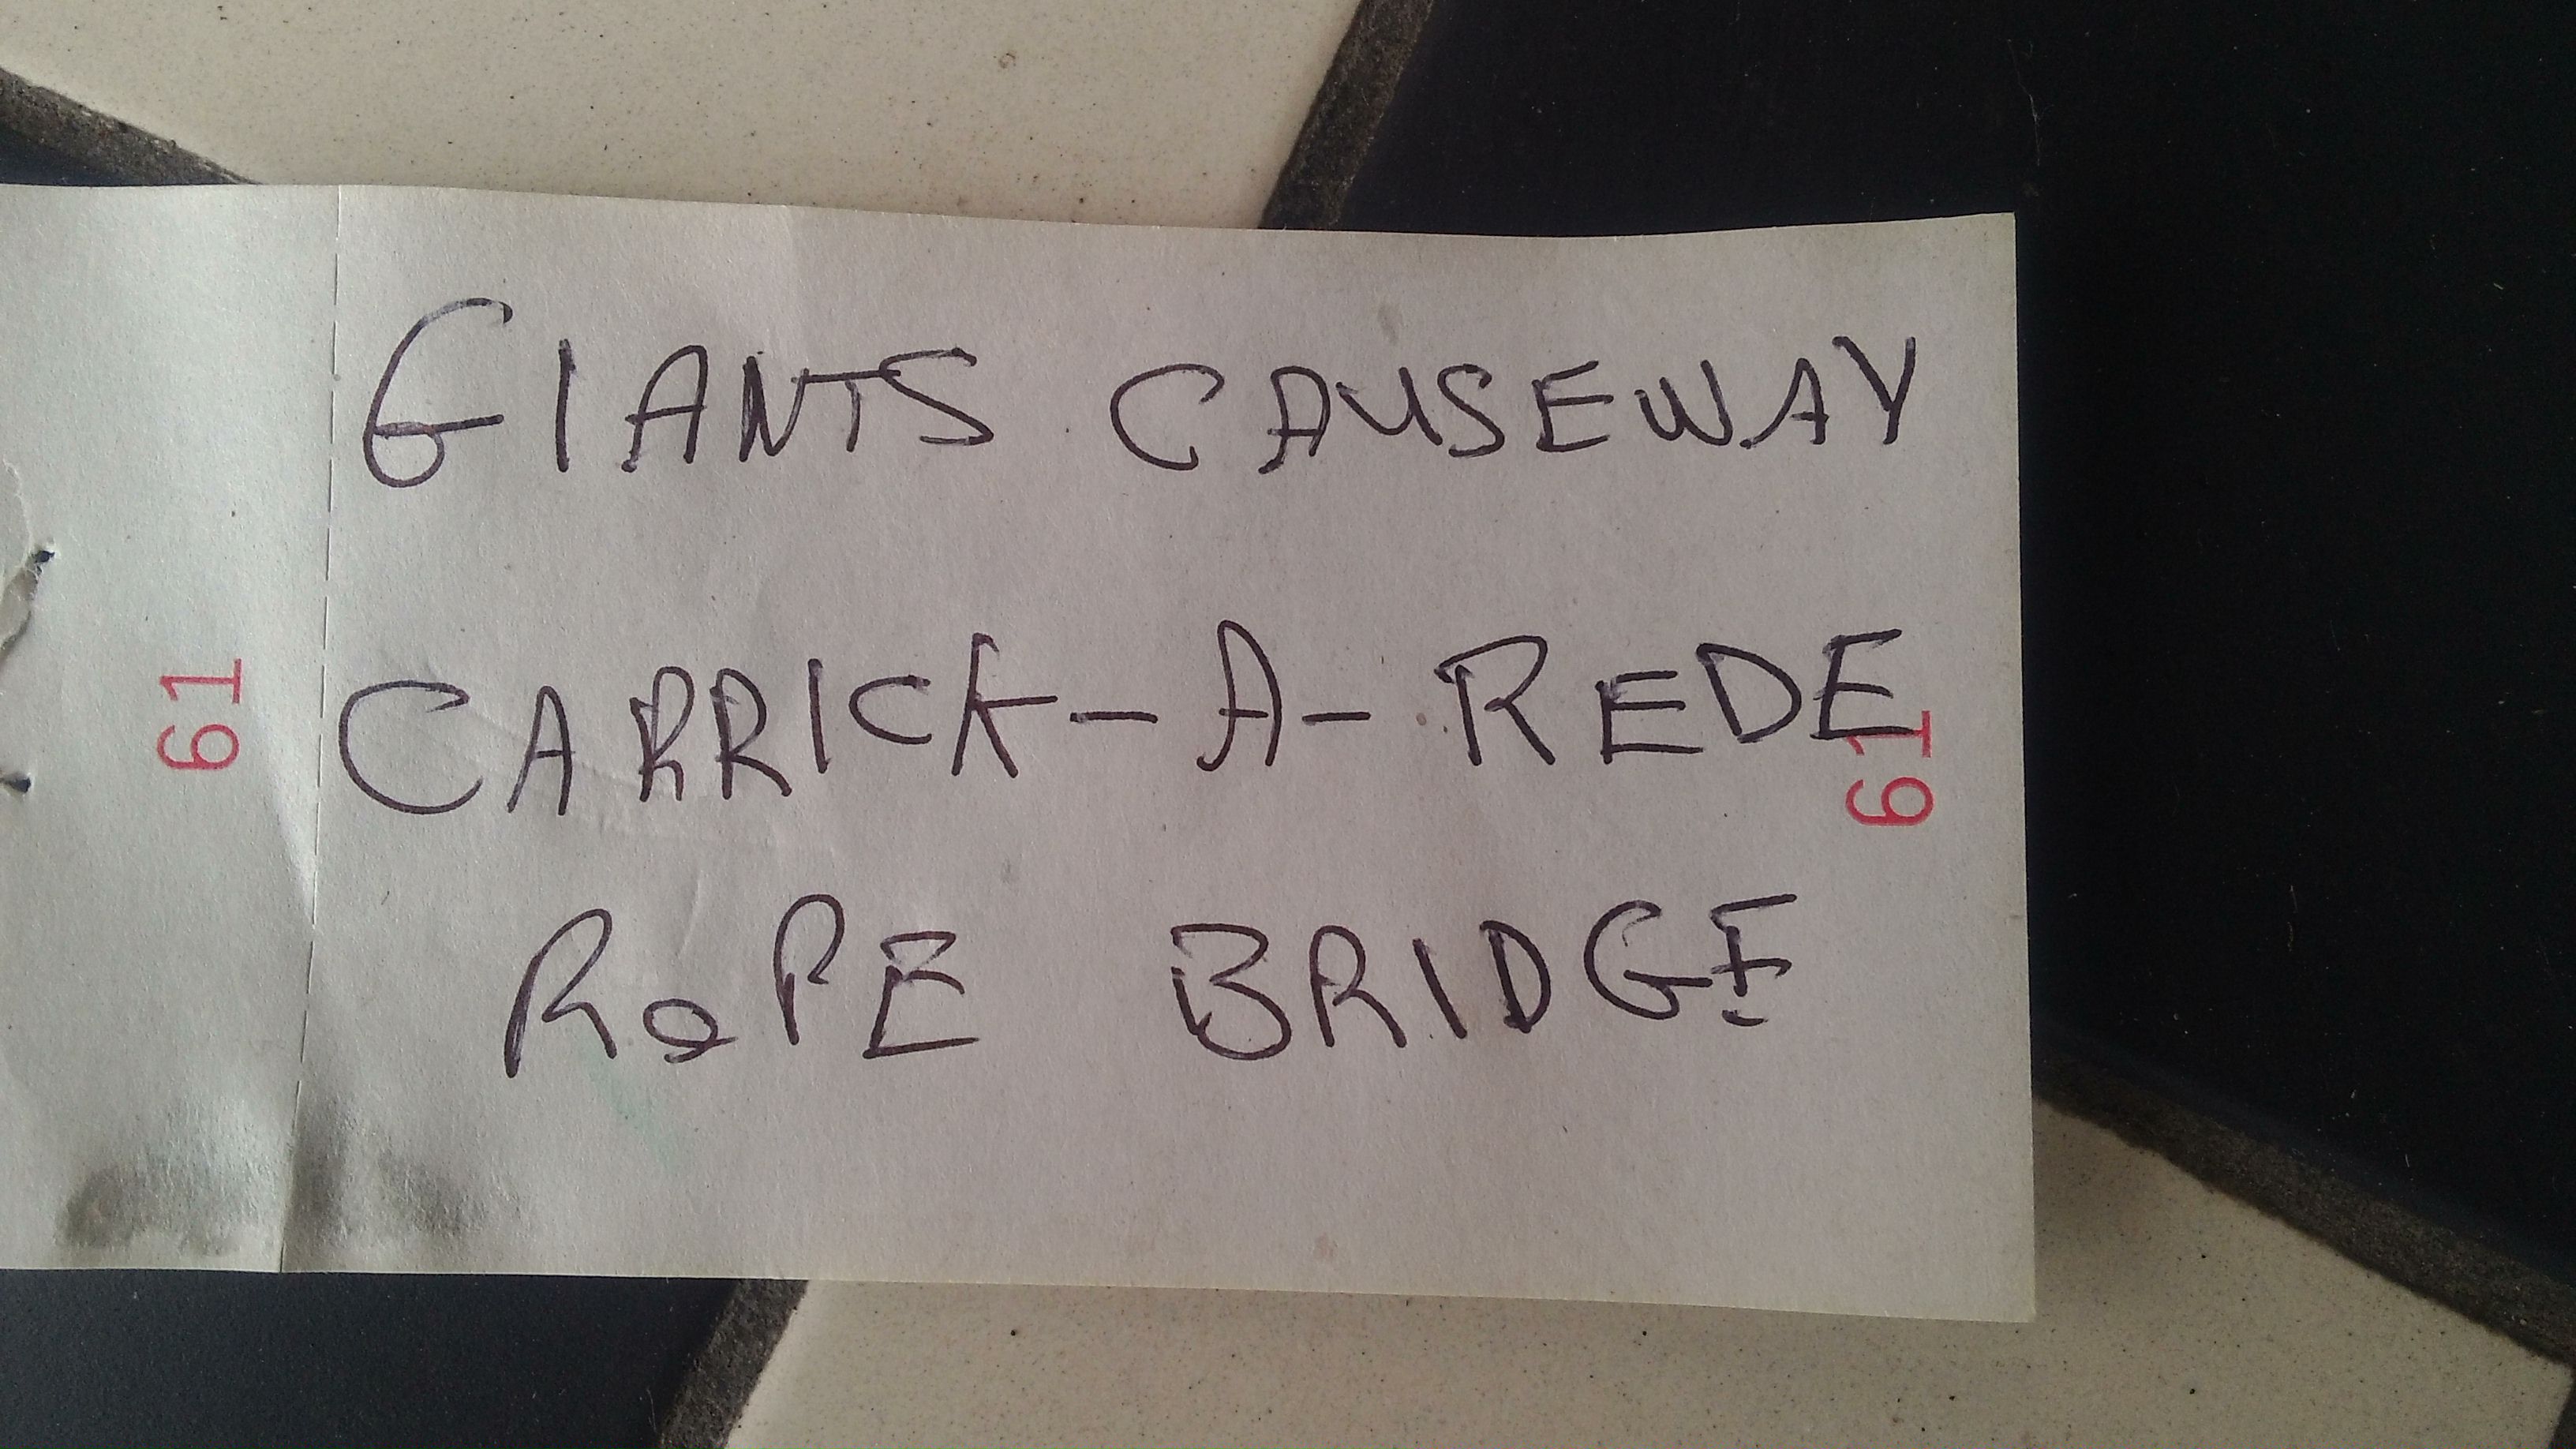 GIANTS CAUSEWAY
61
CARRICK-A-REDE
61
ROPE BRIDGE